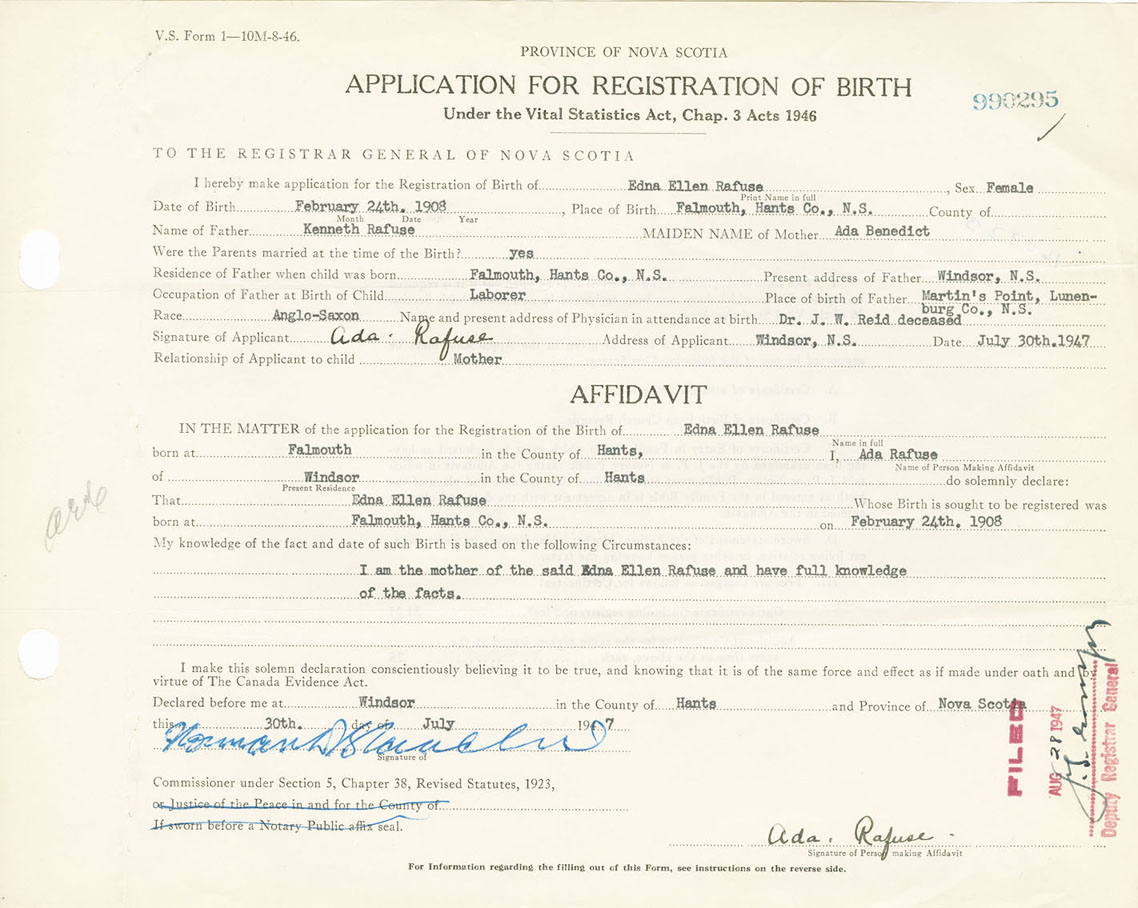 V.S. Form 1—10M-8-46.
PROVINCE OF NOVA SCOTIA
APPLICATION FOR REGISTRATION OF BIRTH
990295
Under the Vital Statistics Act, Chap. 3 Acts 1946
TO THE REGISTRAR GENERAL OF NOVA SCOTIA
I hereby make application for the Registration of Birth of Edna Ellen Rafuse, Sex Female
Print Name in full
Date of Birth February 24th. 1908, Place of Birth Falmouth, Hants Co., N.S. County of
Month Date Year
Name of Father Kenneth Rafuse MAIDEN NAME of Mother Ada Benedict
Were the Parents married at the time of the Birth? yes
Residence of Father when child was born Falmouth, Hants Co., N.S. Present address of Father Windsor, N.S.
Occupation of Father at Birth of Child Laborer Place of birth of Father Martin's Point, Lunen-
burg Co., N.S.
Race Anglo-Saxon Name and present address of Physician in attendance at birth Dr. J. W. Reid deceased
Signature of Applicant Ada. Rafuse Address of Applicant Windsor, N.S. Date July 30th.1947
Relationship of Applicant to child Mother
AFFIDAVIT
IN THE MATTER of the application for the Registration of the Birth of Edna Ellen Rafuse
Name in full
born at Falmouth in the County of Hants, I, Ada Rafuse
Name of Person Making Affidavit
of Windsor in the County of Hants do solemnly declare:
Present Residence
That Edna Ellen Rafuse Whose Birth is sought to be registered was
born at Falmouth, Hants Co., N.S. on February 24th. 1908
My knowledge of the fact and date of such Birth is based on the following Circumstances:
I am the mother of the said Edna Ellen Rafuse and have full knowledge
of the facts.
I make this solemn declaration conscientiously believing it to be true, and knowing that it is of the same force and effect as if made under oath and by
virtue of The Canada Evidence Act.
Declared before me at Windsor in the County of Hants and Province of Nova Scotia
this 30th. day of July 1947
Signature of
Commissioner under Section 5, Chapter 38, Revised Statutes, 1923,
or Justice of the Peace in and for the County of
If sworn before a Notary Public affix seal.
FILED
AUG 28 1947
Deputy Registrar General
Ada. Rafuse.
Signature of Person making Affidavit
For Information regarding the filling out of this Form, see instructions on the reverse side.